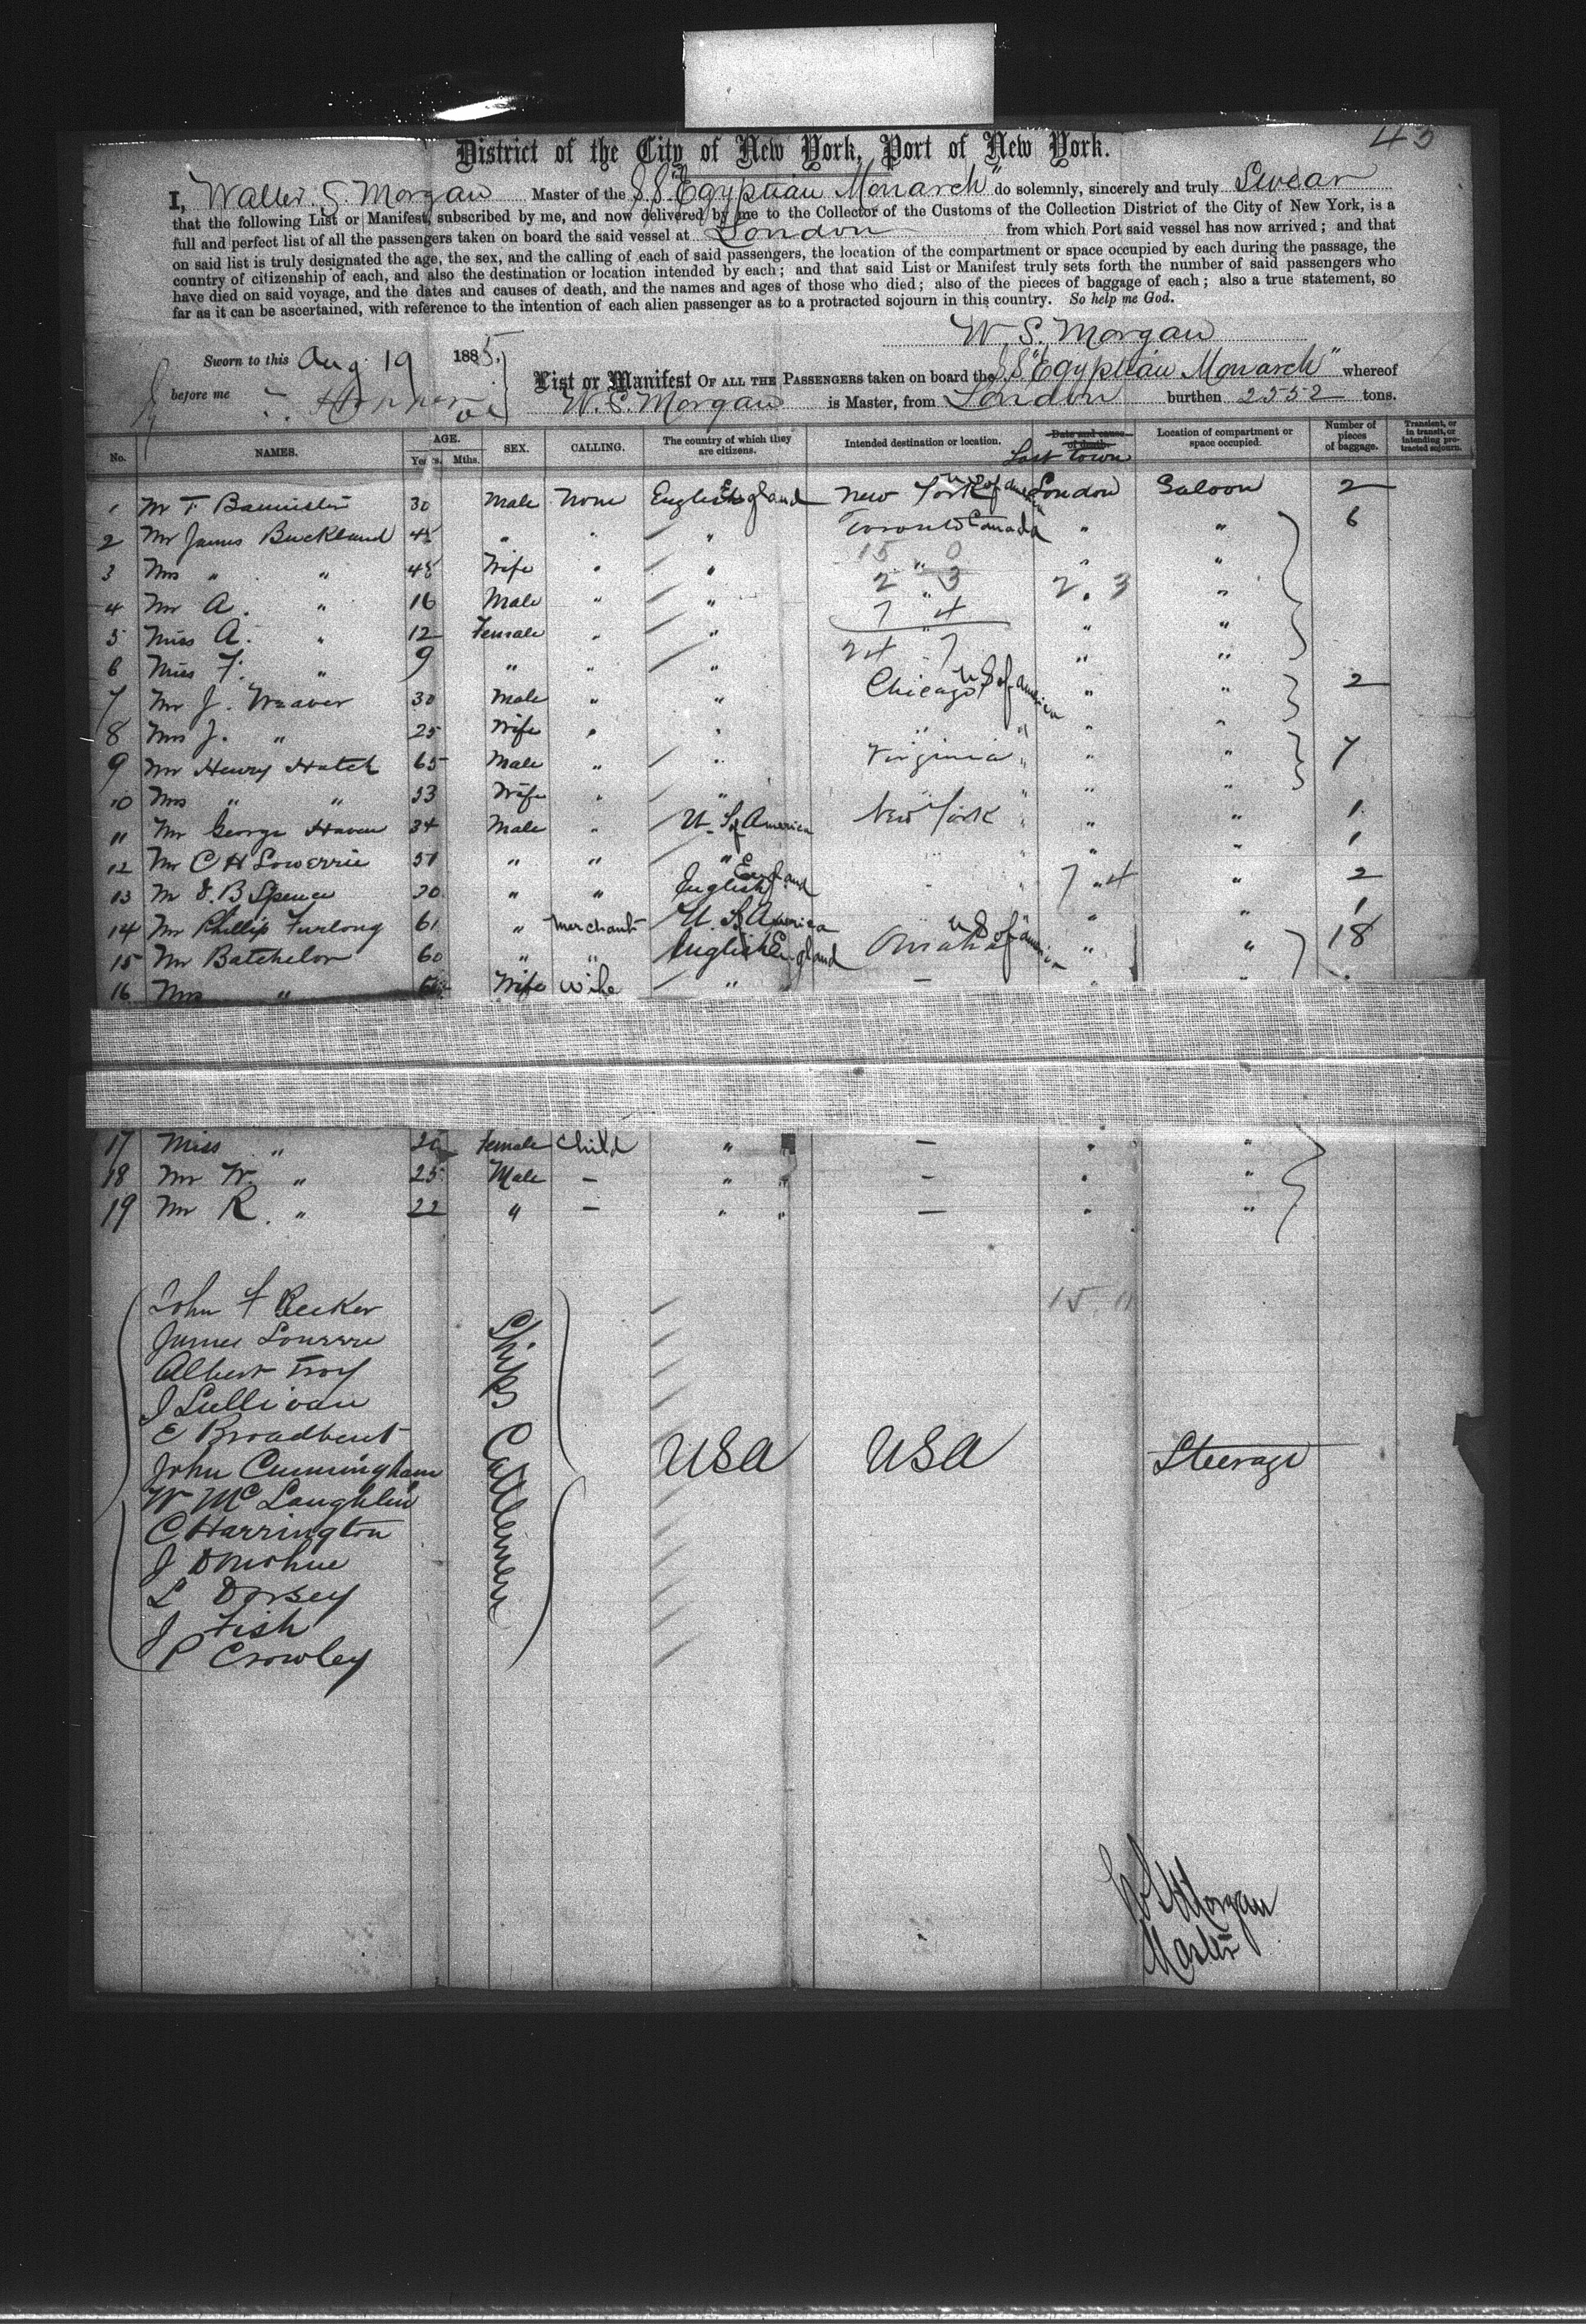 43
District of the City of New York, Port of New York.
I, Walter S. Morgan Master of the S.S. "Egyptian Monarch" do solemnly, sincerely and truly Swear
that the following List or Manifest, subscribed by me, and now delivered by me to the Collector of the Customs of the Collection District of the City of New York, is a
full and perfect list of all the passengers taken on board the said vessel at London from which Port said vessel has now arrived; and that
on said list is truly designated the age, the sex, and the calling of each of said passengers, the location of the compartment or space occupied by each during the passage, the
country of citizenship of each, and also the destination or location intended by each; and that said List or Manifest truly sets forth the number of said passengers who
have died on said voyage, and the dates and causes of death, and the names and ages of those who died; also of the pieces of baggage of each; also a true statement, so
far as it can be ascertained, with reference to the intention of each alien passenger as to a protracted sojourn in this country. So help me God.
W. S. Morgan
Sworn to this Aug 19 1885.
before me
List or Manifest OF ALL THE PASSENGERS taken on board the S.S. "Egyptian Monarch" whereof
W. S. Morgan is Master, from London burthen 2552 tons.
No. NAMES. AGE. Years. Mths. SEX. CALLING. The country of which they are citizens. Intended destination or location. Date and cause of death. Last town Location of compartment or space occupied. Number of pieces of baggage. Transient, or in transit, or intending protracted sojourn.
1 Mr T Bannister 30 Male None English England New York U S of America London Saloon 2
2 Mr James Buckland " " " Toronto Canada " " 6
3 Mrs " " 48 Wife " " " " "
15 0
4 Mr A. " 16 Male " " " "
2 3 2. 3
5 Miss A. " 12 Female " " " " "
7 4
6 Miss F. " 9 " " " " "
24 7
7 Mr J. Weaver 30 Male " " Chicago U S of America " " 2
8 Mrs J. " 25 Wife " " " " " "
9 Mr Henry Hatch 65 Male " " Virginia " " " 7
10 Mrs " " 53 Wife " " " " " "
11 Mr George Haven 34 Male " U. S of America New York " " " 1
12 Mr C H Lowerrie 51 " " " " " " 1
13 M B Spence " " English England " " 7 4 " 2
14 Mr Phillip Furlong 61 " Merchant U. S of America " " 1
15 Mr Batchelor 60 " " English England Omaha U S of America " " 18
16 Mrs " Wife Wife " — " "
17 Miss " Female Child " " — " "
18 Mr W. " 25 Male — " " — " "
19 Mr R. " 22 " — " " — " "
John F Becker
15. 11
James
Albert Troy
J Sullivan
E Broadbent
John Cunningham
W McLaughlin
C Harrington
J Donohue
L Dorsey
J Fish
P Crowley
Ships Cattlemen
USA USA Steerage
W S Morgan
Master